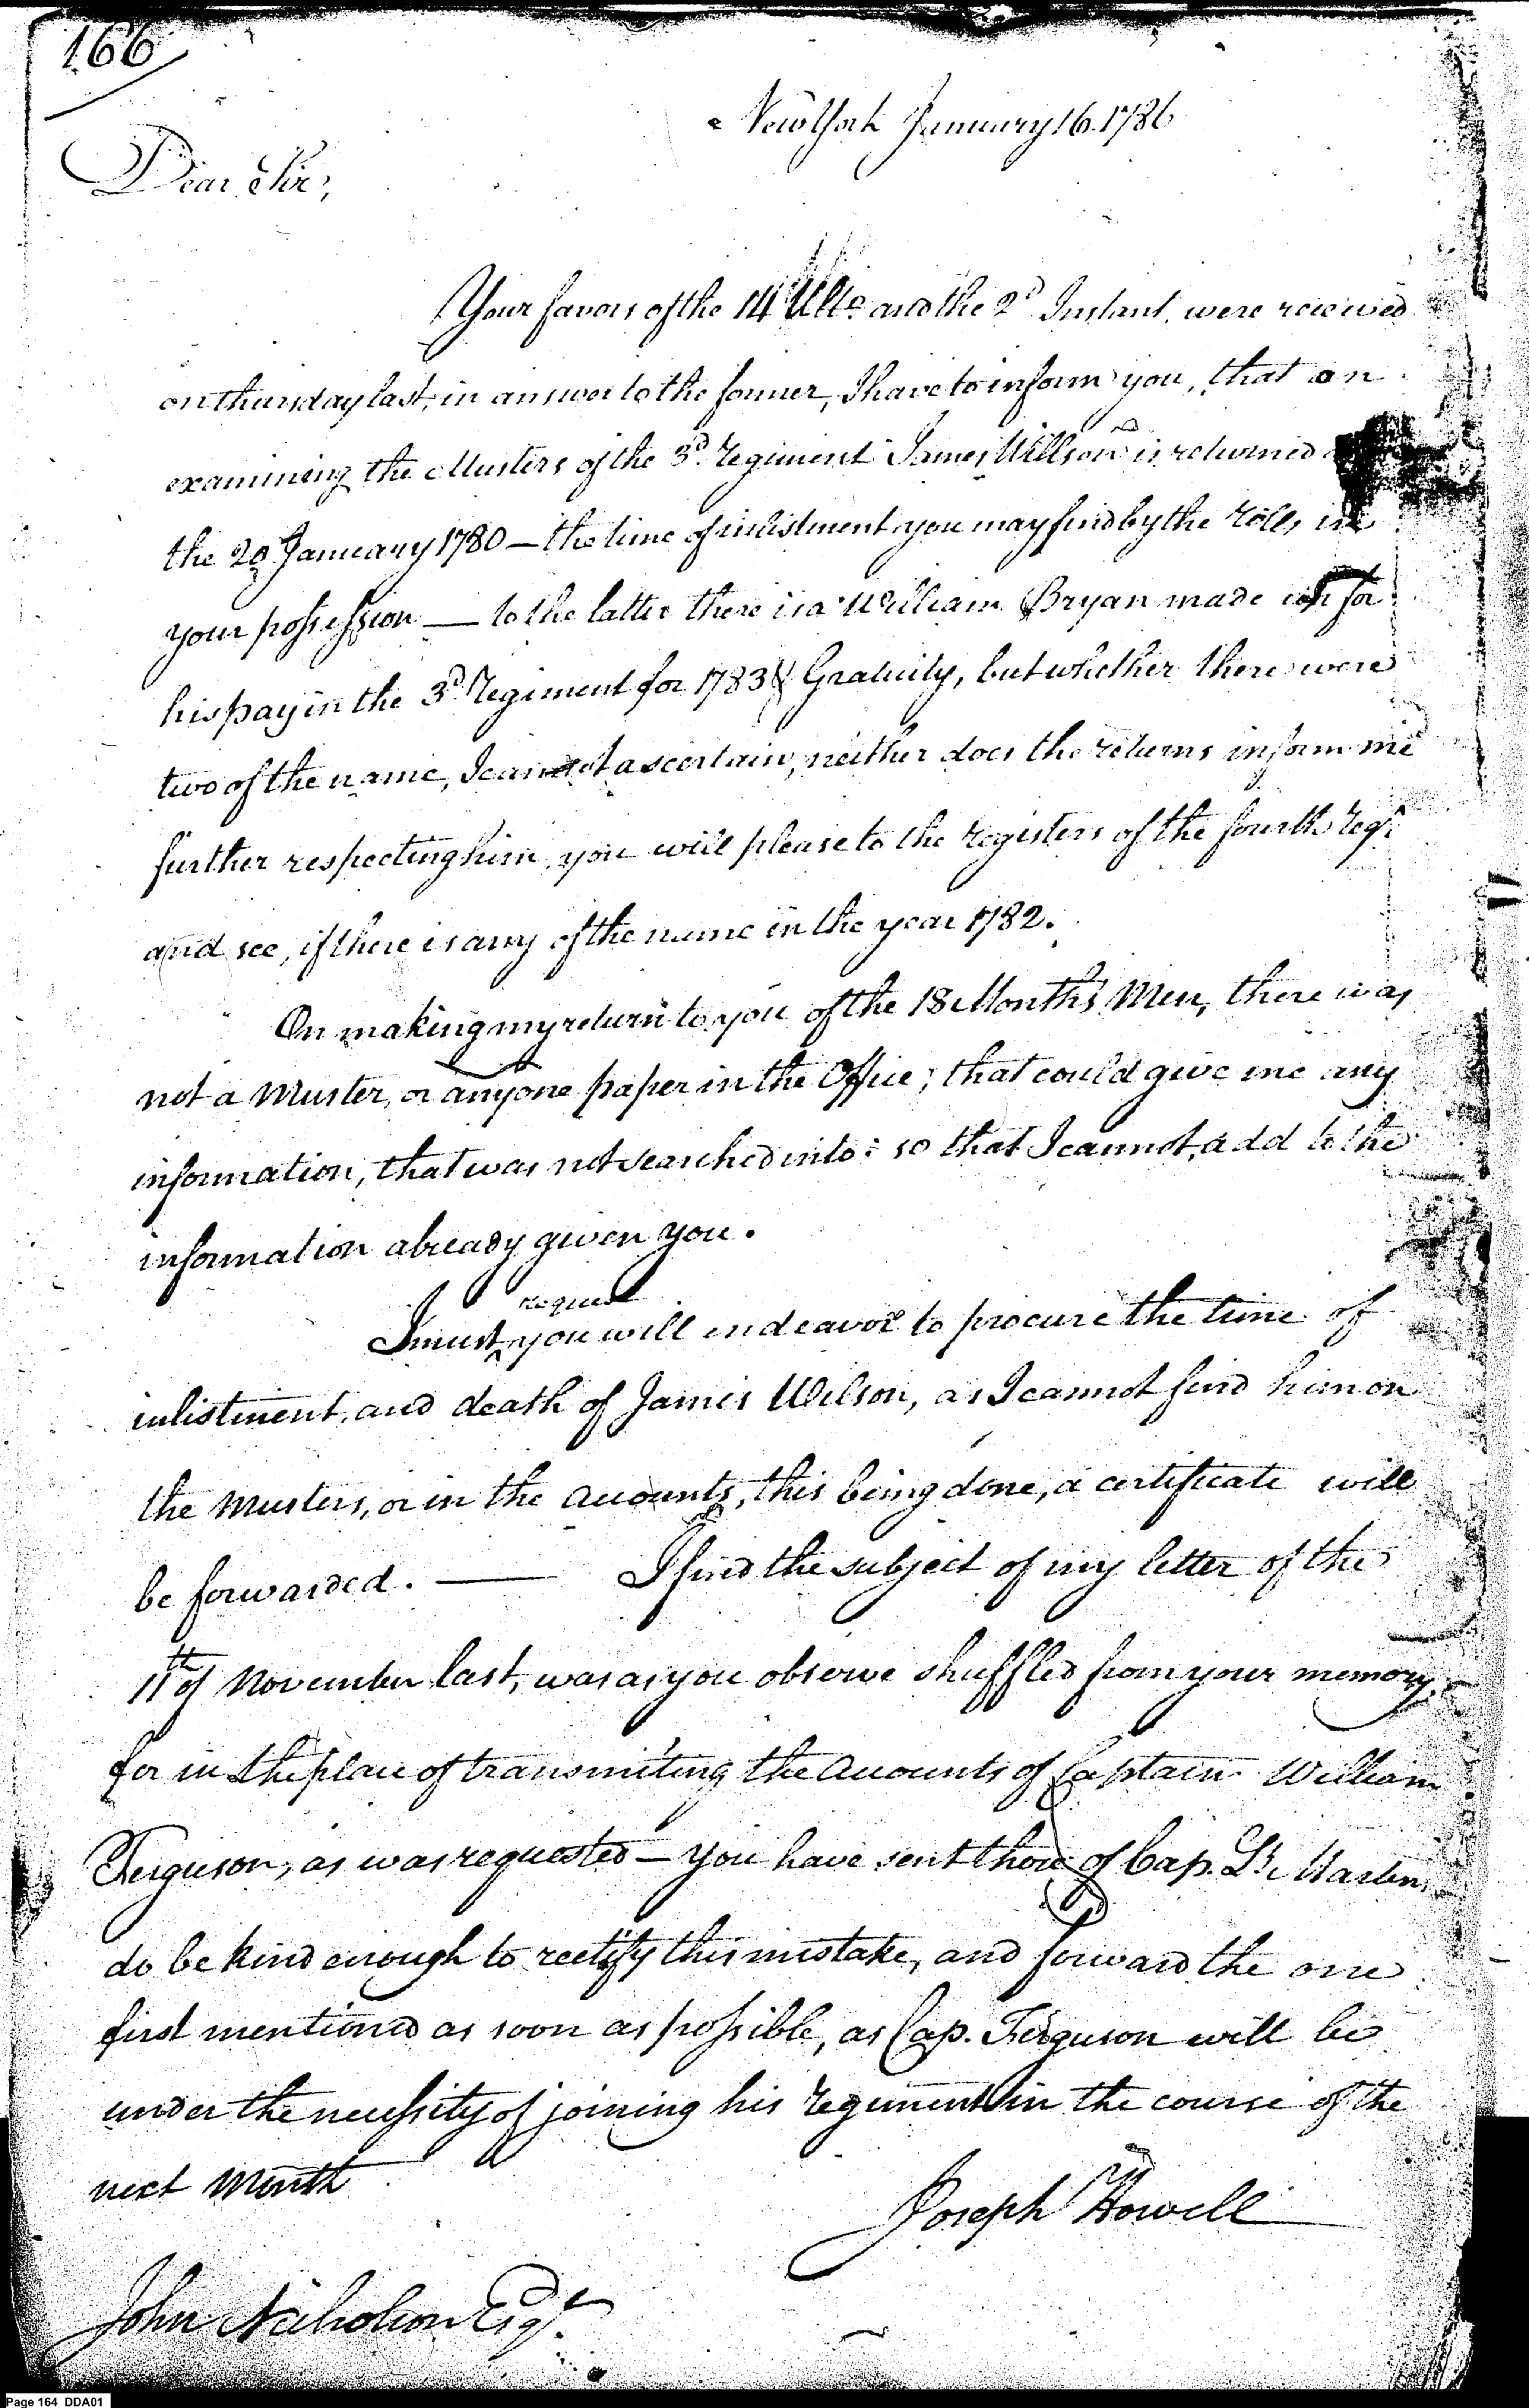 166
New York January 16. 1786
Dear Sir,
Your favors of the 14 Ulto. and the 2d Instant, were received
on thursday last, in answer to the former, I have to inform you, that on
examining the Musters of the 3d. regiment James Willson is returned
the 20 January 1780 — the time of inlistment you may find by the rolls in
your possession — to the latter there is a William Bryan made for
his pay in the 3d. regiment for 1783 & Gratuity, but whether there were
two of the name, I cannot ascertain, neither does the returns inform me
further respecting him, you will please to the registers of the fourth regt.
and see, if there is any of the name in the year 1782.
On making my return to you of the 18 Months Men, there was
not a Muster, or any one paper in the Office; that could give me any
information, that was not searched into: so that I cannot, add to the
information already given you.
request
I must ^ you will endeavor to procure the time of
inlistment, and death of James Wilson, as I cannot find him on
the Musters, or in the accounts, this being done, a certificate will
be forwarded. — I find the subject of my letter of the
11th of November last, was as you observe shuffled from your memory,
for in the place of transmiting the accounts of Captain William
Ferguson, as was requested — you have sent those of Cap. Lt. Martin,
do be kind enough to rectify this mistake, and forward the one
first mentioned as soon as possible, as Cap. Ferguson will be
under the necessity of joining his regiment in the course of the
next Month
Joseph Howell
John Nicholson Esqr.
Page 164 DDA01